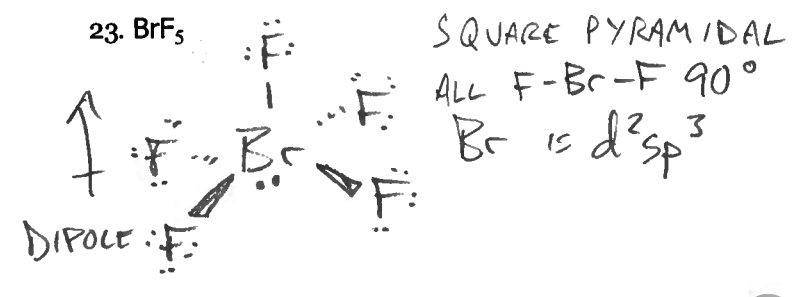 23. BrF₅
SQUARE PYRAMIDAL
ALL F-Br-F 90°
Br is d²sp³
:F:
F:
:F Br
F:
DIPOLE :F: